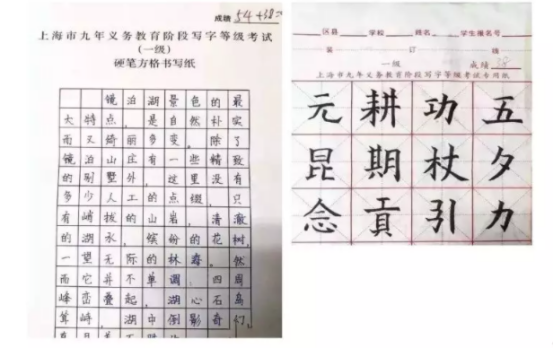 成绩 54+38
上海市九年义务教育阶段写字等级考试
(一级)
硬笔方格书写纸
镜泊湖景色的最
大特点，是自然朴实
而又绮丽多变。除了
镜泊山庄有一些精致
的别墅外，这里没有
多少人工的点缀，只
有峭拔的山岩，清澈
的湖水，缤纷的花树，
一望无际的林海。然
而它并不单调，四周
峰峦叠起，湖心石岛
耸峙，湖中倒影奇幻，
区县 学校 姓名 学生课名号
装 订 线
一级 成绩
上海市九年义务教育阶段写字等级考试专用纸
元耕功五
昆期杖夕
念贡引力